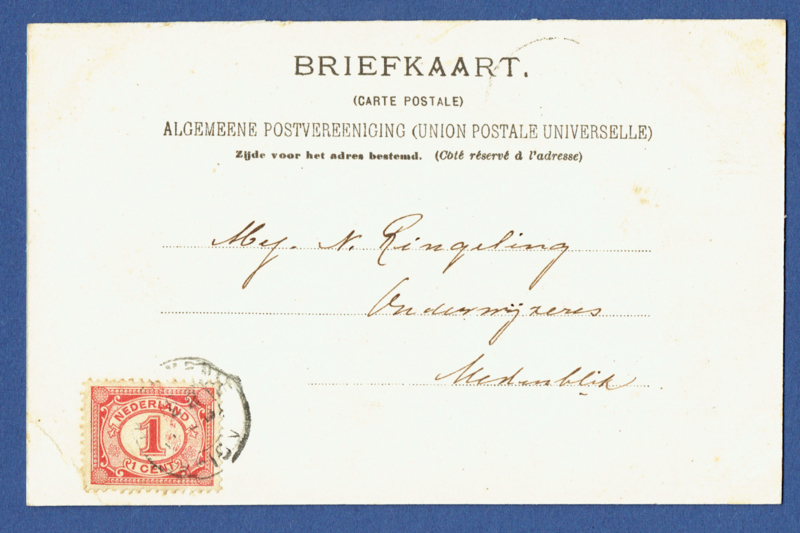 BRIEFKAART.
(CARTE POSTALE)
ALGEMEENE POSTVEREENIGING (UNION POSTALE UNIVERSELLE)
Zijde voor het adres bestemd. (Côté réservé à l'adresse)
Mej. N. Ringeling
Onderwijzeres
Medemblik
NEDERLAND
1
1 CENT